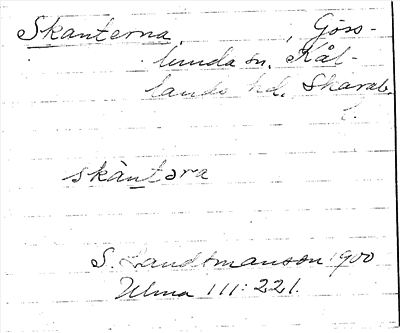 Skanterna, Göss-
lunda sn. Kål-
lands hd. Skarab.
l.
skàntəra
S. Landtmanson 1900
Ulma 111:221.